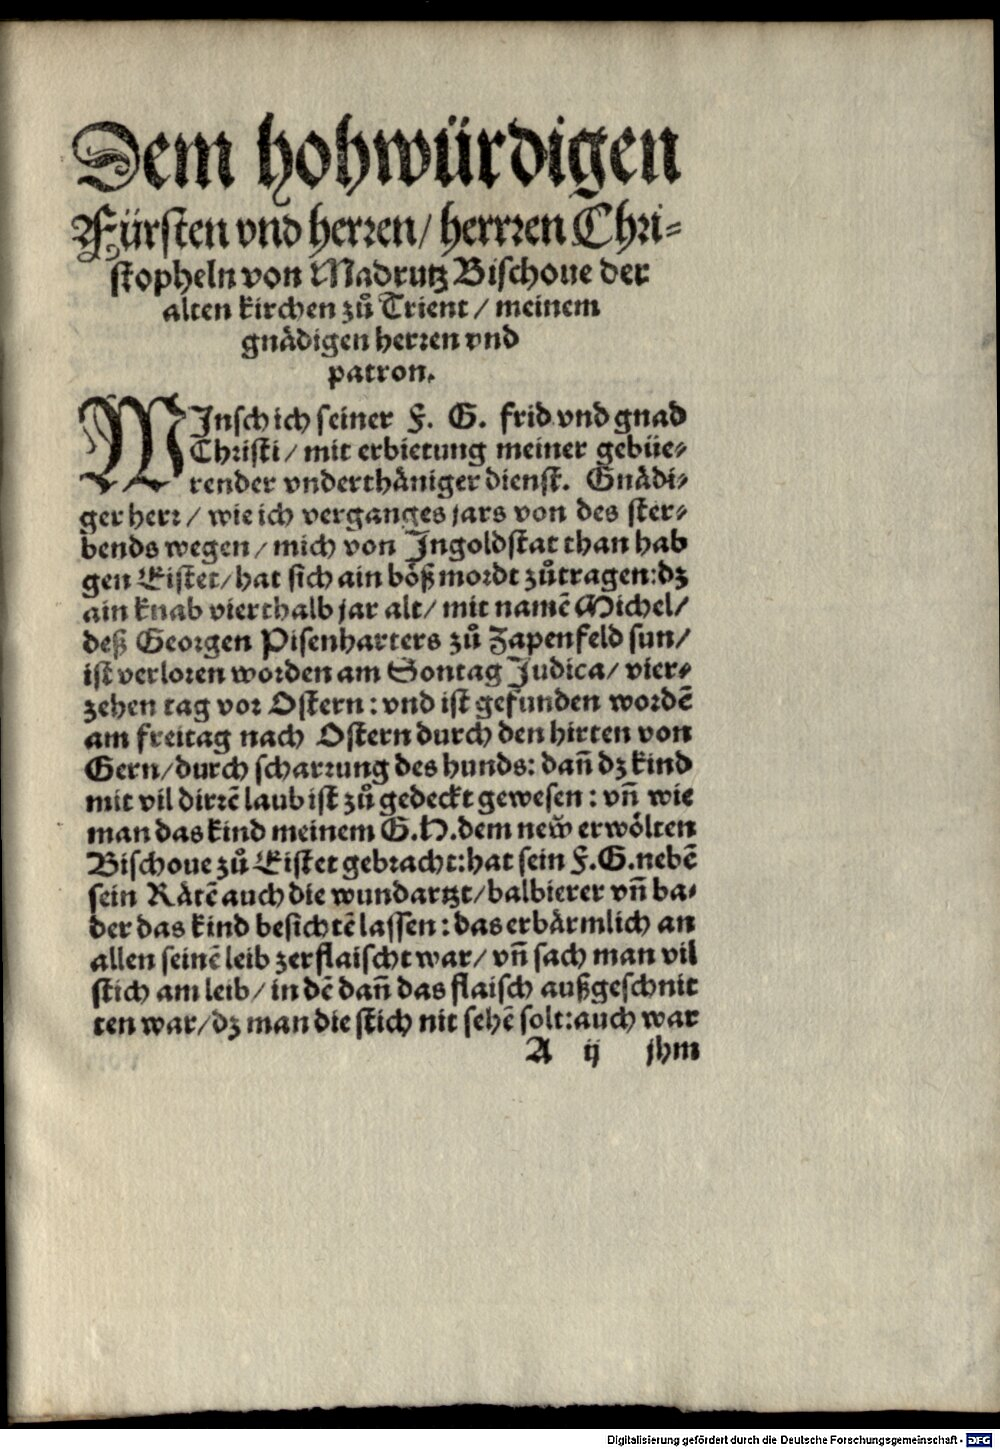 Dem hohwürdigen
Fürsten vnd herren/ herrren Chri-
stopheln von Madrutz Bischoue der
alten kirchen zů Trient / meinem
gnädigen herren vnd
patron.
WJnsch ich seiner F. G. frid vnd gnad
Christi / mit erbietung meiner gebüe-
render vnderthäniger dienst. Gnädi-
ger herr / wie ich verganges jars von des ster-
bends wegen / mich von Jngoldstat than hab
gen Eistet / hat sich ain böß mordt zůtragen: dz
ain knab vierthalb jar alt / mit namē Michel /
deß Georgen Pisenharters zů Zapenfeld sun /
ist verloren worden am Sontag Judica / vier-
zehen tag vor Ostern : vnd ist gefunden wordē
am freitag nach Ostern durch den hirten von
Gern / durch scharrung des hunds: dañ dz kind
mit vil dirrē laub ist zů gedeckt gewesen : vñ wie
man das kind meinem G. H. dem new erwölten
Bischoue zů Eistet gebracht: hat sein F. G. nebē
sein Rätē auch die wundartzt / balbierer vñ ba-
der das kind besichtē lassen : das erbärmlich an
allen seinē leib zerflaischt war / vñ sach man vil
stich am leib / in dē dañ das flaisch außgeschnit
ten war / dz man die stich nit sehē solt: auch war
A ij jhm
Digitalisierung gefördert durch die Deutsche Forschungsgemeinschaft - DFG